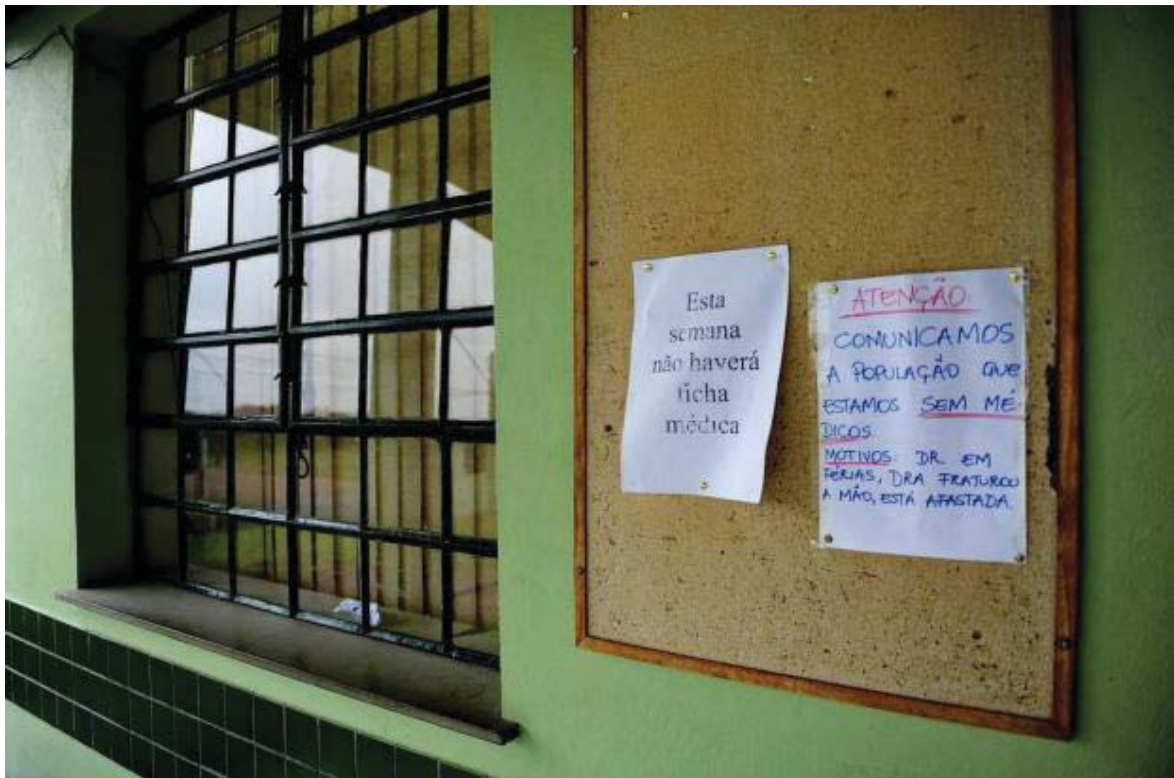 Esta
semana
não haverá
ficha
médica
ATENÇÃO:
COMUNICAMOS
A POPULAÇÃO QUE
ESTAMOS SEM MÉ-
DICOS
MOTIVOS: DR. EM
FÉRIAS, DRA FRATUROU
A MÃO, ESTÁ AFASTADA.